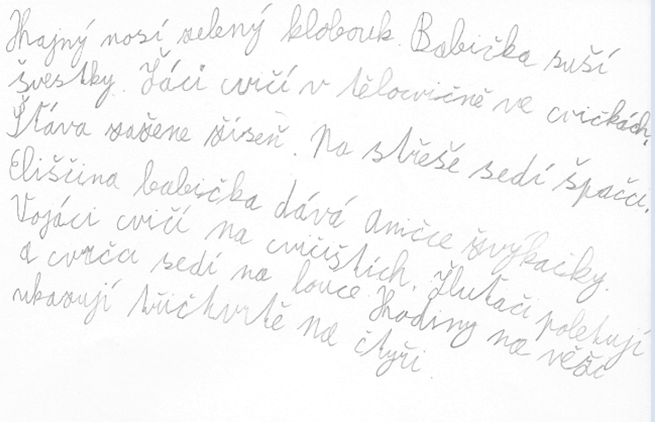 Hajný nosí zelený klobouk. Babička suší
švestky. Žáci cvičí v tělocvičně ve cvičkách.
Šťáva zažene žízeň. Na střeše sedí špačci.
Eliščina babička dává Aničce žvýkačky.
Vojáci cvičí na cvičištích. Žluťáci poletují
a cvrčci sedí na louce. Hodiny na věži
ukazují třičtvrtě na čtyři.